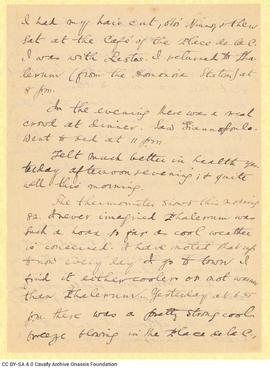 I had my hair cut, chez Ninos, & then
sat at the Café of the Place de la C.
I was with Zestos. I returned to Pha-
lerum (from the Homonoia Station) at
8 pm.
In the evening there was a real
crowd at dinner. Saw Giannopoulo.
Went to bed at 11 pm.
Felt much better in health yes-
terday afternoon & evening; & quite
well this morning.
The thermometer shows this morning
82. I never imagined Phalerum was
such a hoax so far as cool weather
is concerned. I have noted that up
to now every day I go to town I
find it either cooler or not warmer
than Phalerum. Yesterday at 6.35
pm there was a pretty strong cool
breeze blowing in the Place de la C.
CC BY-SA 4.0 Cavafy Archive Onassis Foundation